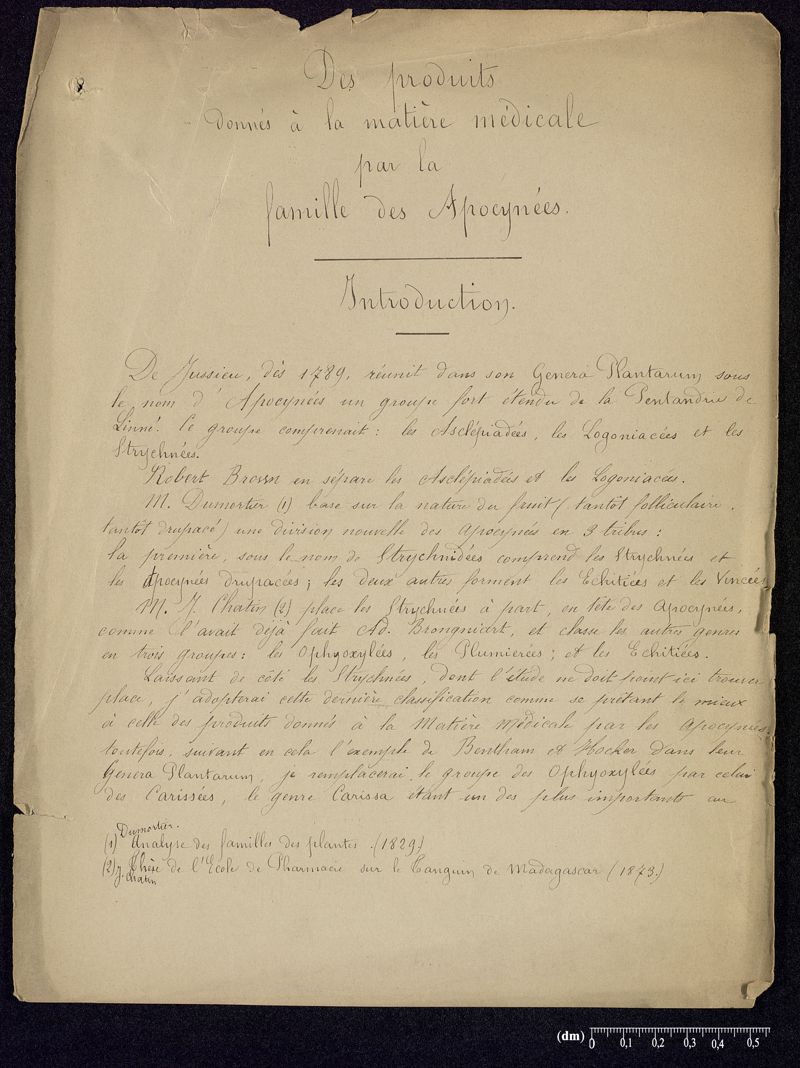 8
Des produits
donnés à la matière médicale
par la
famille des Apocynées.
Introduction.
De Jussieu, dès 1789, réunit dans son Genera Plantarum sous
le nom d'Apocynées un groupe fort étendu de la Pentandrie de
Linné. Ce groupe comprenait : les Asclépiadées, les Logoniacées et les
Strychnées.
Robert Brown en sépare les Asclépiadées et les Logoniacées.
M. Dumortier (1) base sur la nature du fruit (tantôt folliculaire,
tantôt drupacé) une division nouvelle des Apocynées en 3 tribus :
la première, sous le nom de Strychnidées comprend les Strychnées et
les Apocynées drupacées; les deux autres forment les Echitées et les Vincées
M. J. Chatin (2) place les Strychnées à part, en tête des Apocynées,
comme l'avait déjà fait Ad. Brongniart, et classe les autres genres
en trois groupes : les Ophyoxylées, les Plumierées; et les Echitées.
Laissant de côté les Strychnées, dont l'étude ne doit point ici trouver
place, j'adopterai cette dernière classification comme se prêtant le mieux
à celle des produits donnés à la Matière Médicale par les Apocynées
toutefois, suivant en cela l'exemple de Bentham et Hocker dans leur
Genera Plantarum, je remplacerai le groupe des Ophyoxylées par celui
des Carissées, le genre Carissa étant un des plus importants au
Dumortier.
(1) Analyse des familles des plantes. (1829.)
(2) Thèse de l'Ecole de Pharmacie sur le Tanguin de Madagascar (1873.)
J. Chatin
(dm) 0 0,1 0,2 0,3 0,4 0,5